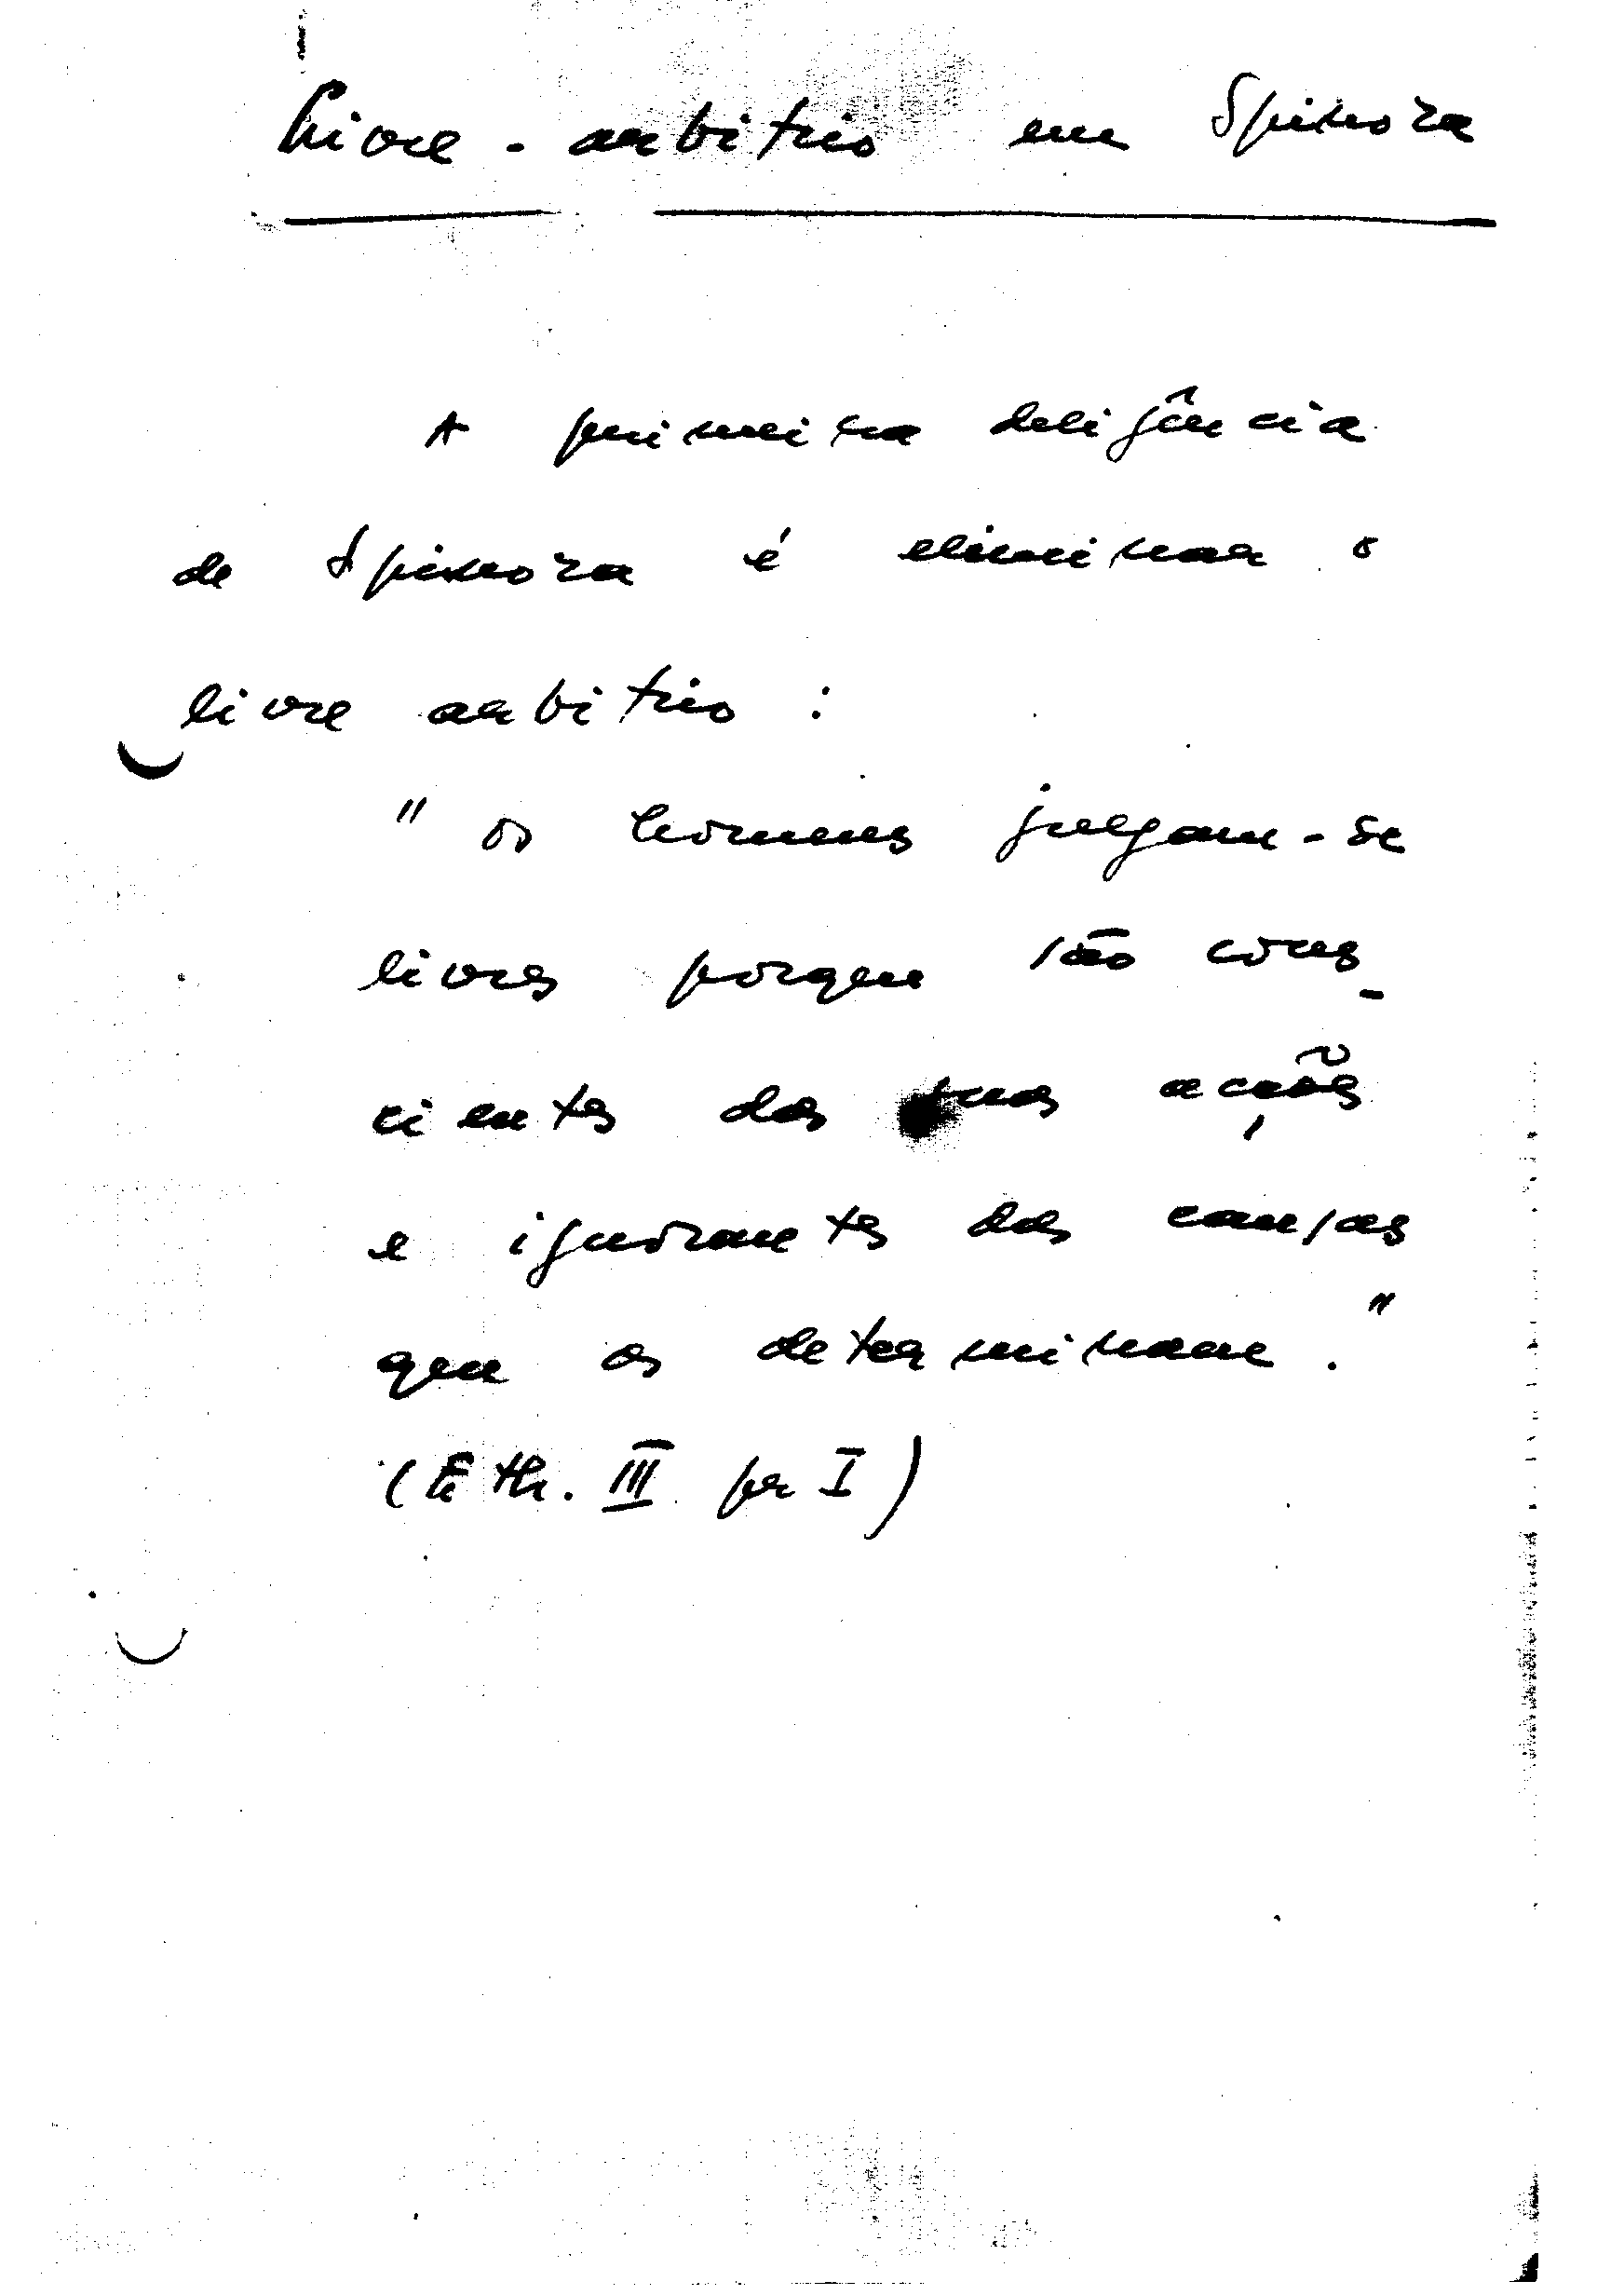 Livre-arbitrio em Spinoza
A primeira deligência
de Spinoza é eliminar o
livre arbitrio :
" os homens julgam-se
livres porque são cons-
cientes das suas acções
e ignorantes das causas
que os determinam . "
(Eth. III pr I)